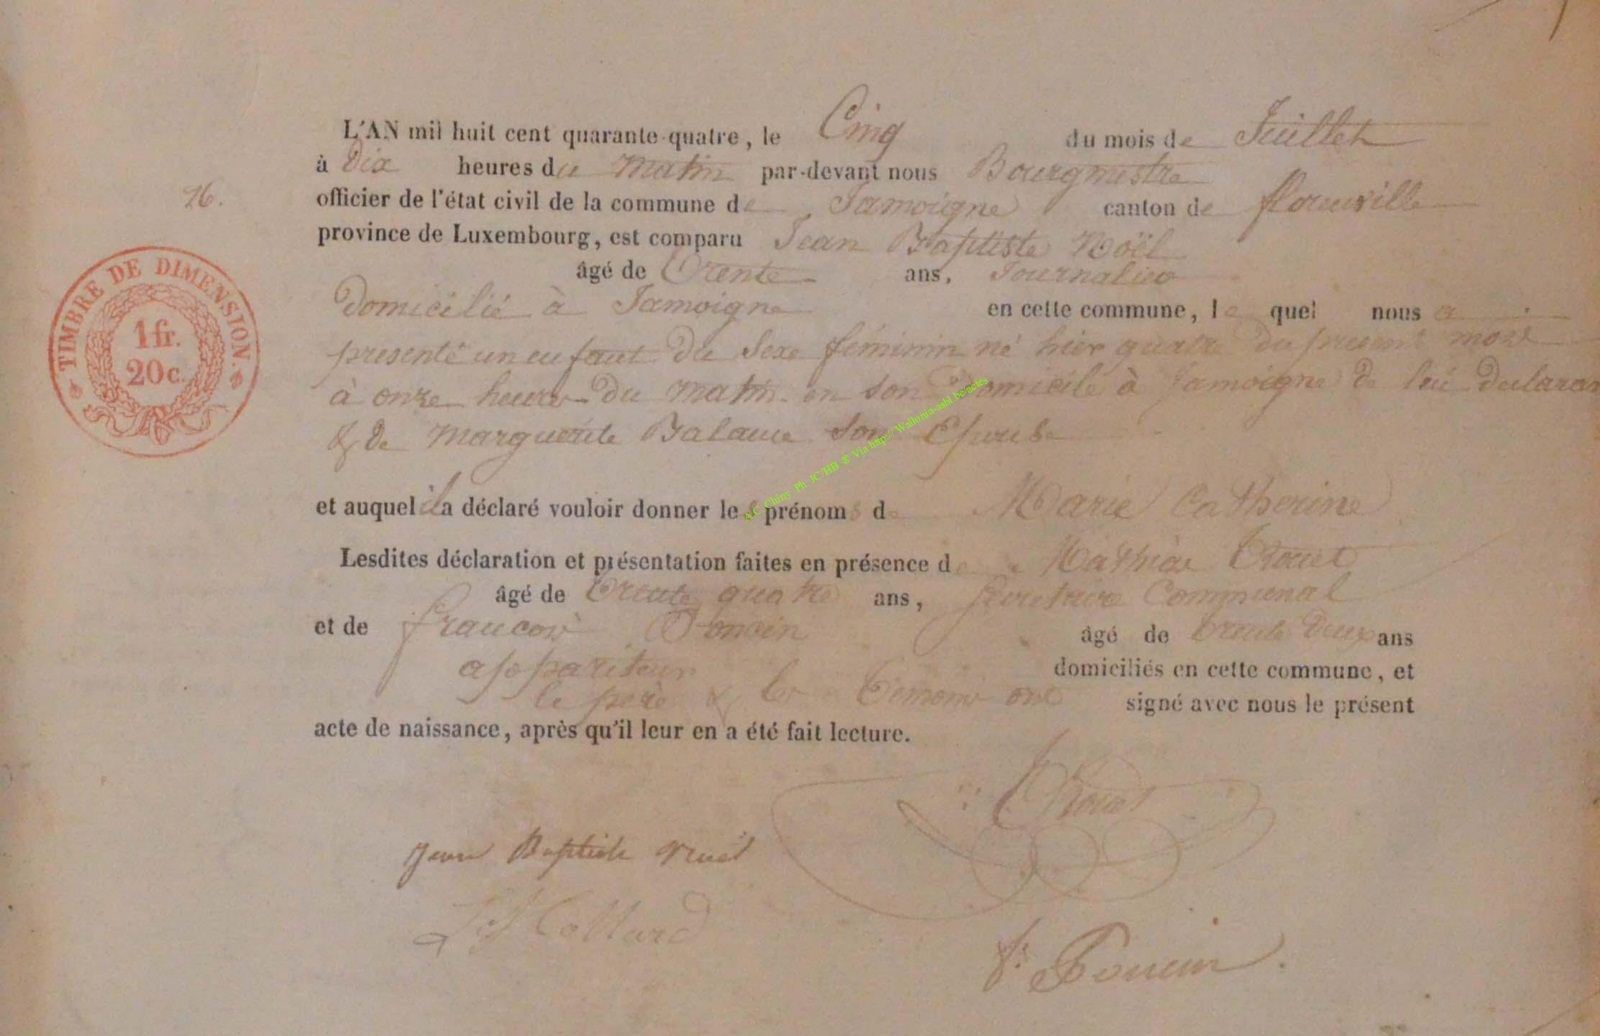 L'AN mil huit cent quarante-quatre, le Cinq du mois de Juillet
à Dix heures du matin par-devant nous Bourgmestre
officier de l'état civil de la commune de Jamoigne canton de florenville
16.
province de Luxembourg, est comparu Jean Baptiste Noël
âgé de Trente ans, Journalier
Domicilié à Jamoigne en cette commune, le quel nous a
présenté un enfant du sexe féminin né hier quatre du present mois
à onze heures du matin en son Domicile à Jamoigne de lui déclarant
& de Marguerite son Epouse
et auquel il a déclaré vouloir donner les prénoms de Marie Catherine
Lesdites déclaration et présentation faites en présence de Mathias
âgé de trente quatre ans, secrétaire Communal
et de francois Poncin âgé de trente Deux ans
appariteur domiciliés en cette commune, et
le père & les témoins ont signé avec nous le présent
acte de naissance, après qu'il leur en a été fait lecture.
TIMBRE DE DIMENSION.
1 fr.
20 c.
Jean Baptiste
Collard
Poncin